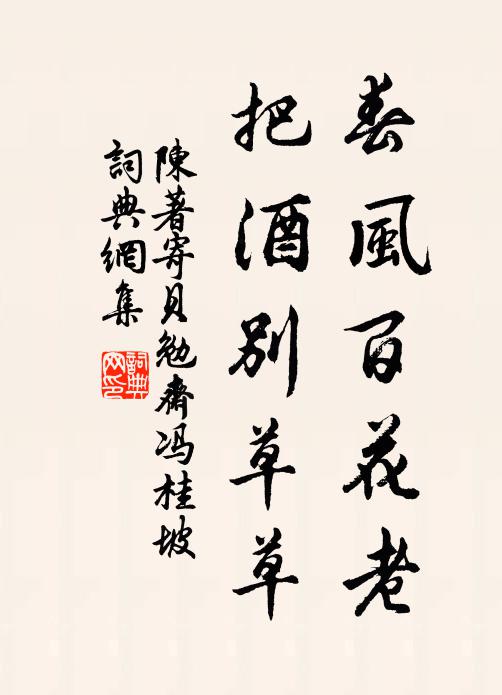 春風百花老
把酒別草草
陳著寄貝勉齋冯桂坡
詞典網集
詞典
网印